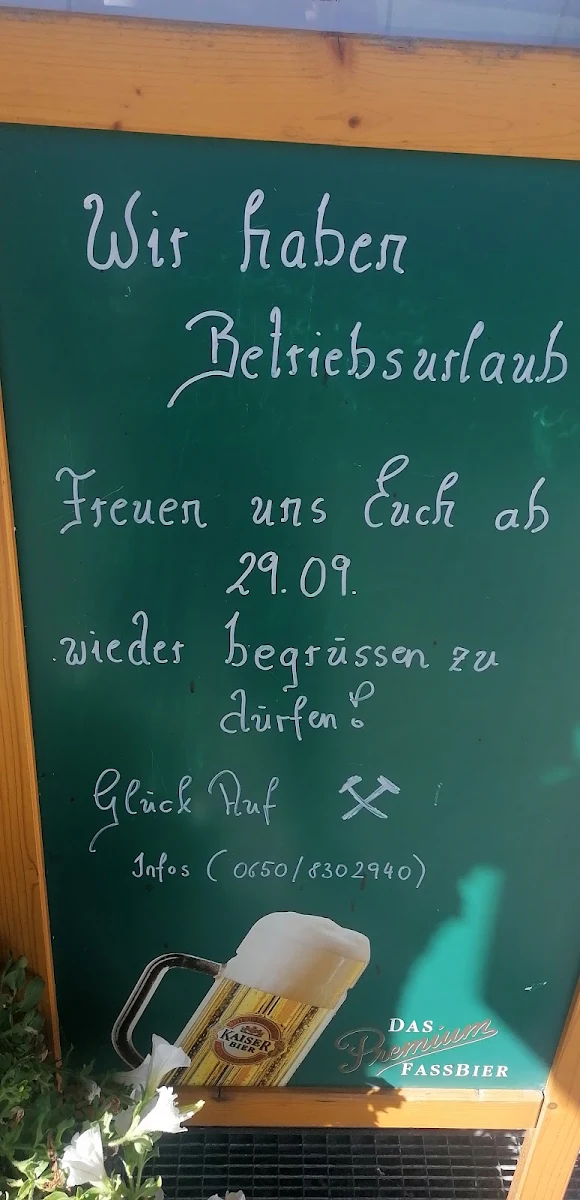 Wir haben
Betriebsurlaub
Freuen uns Euch ab
29.09.
wieder begrüssen zu
dürfen!
Glück Auf
Infos (0650/8302940)
KAISER
BIER
DAS
Premium
FASSBIER